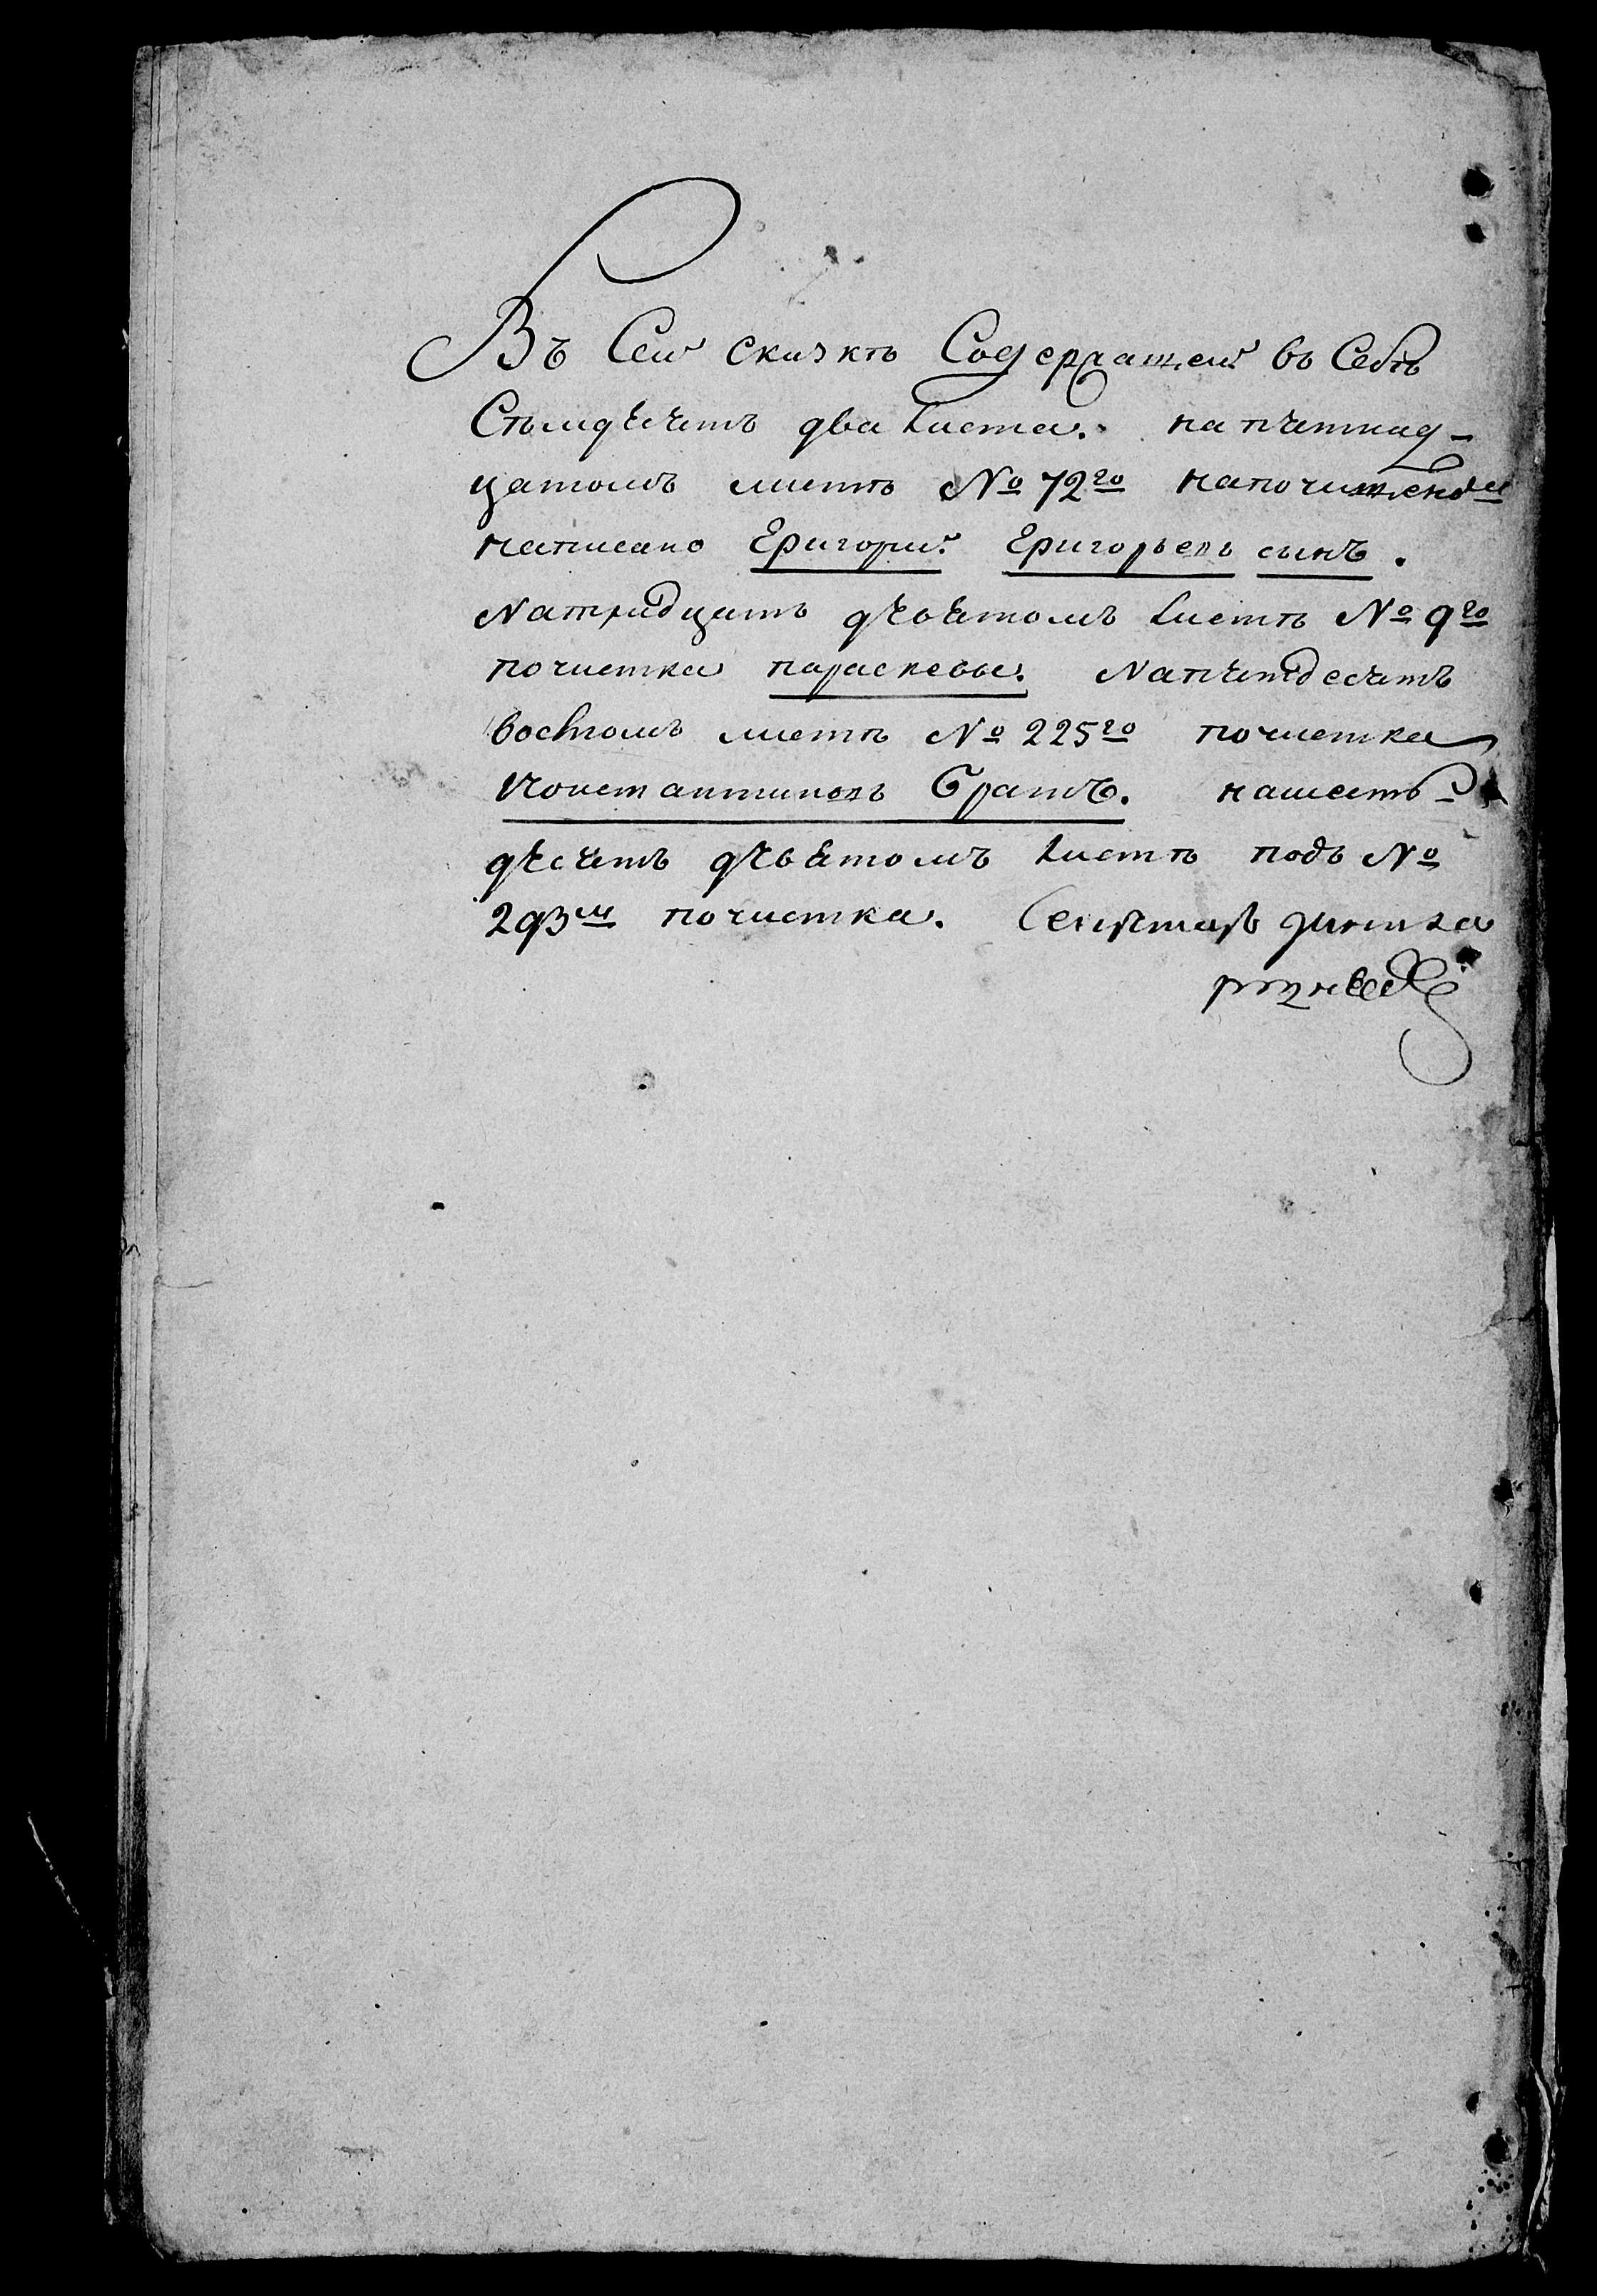 Въ Сей скаскѣ Содержащей въ Себѣ
Сѣмдѣсятъ два Листа. на пятнад-
цатомъ листѣ № 72го напочищеномъ
написано Григорий Григорьевъ сынъ.
На тридцать дѣвятомъ Листѣ № 9го
почистка парасковьи. На пятдесятъ
восмомъ листѣ № 225го почистка
Константиновъ братъ. на шесть-
дѣсятъ дѣвятомъ Листѣ подъ №
293м почистка. Секретарь